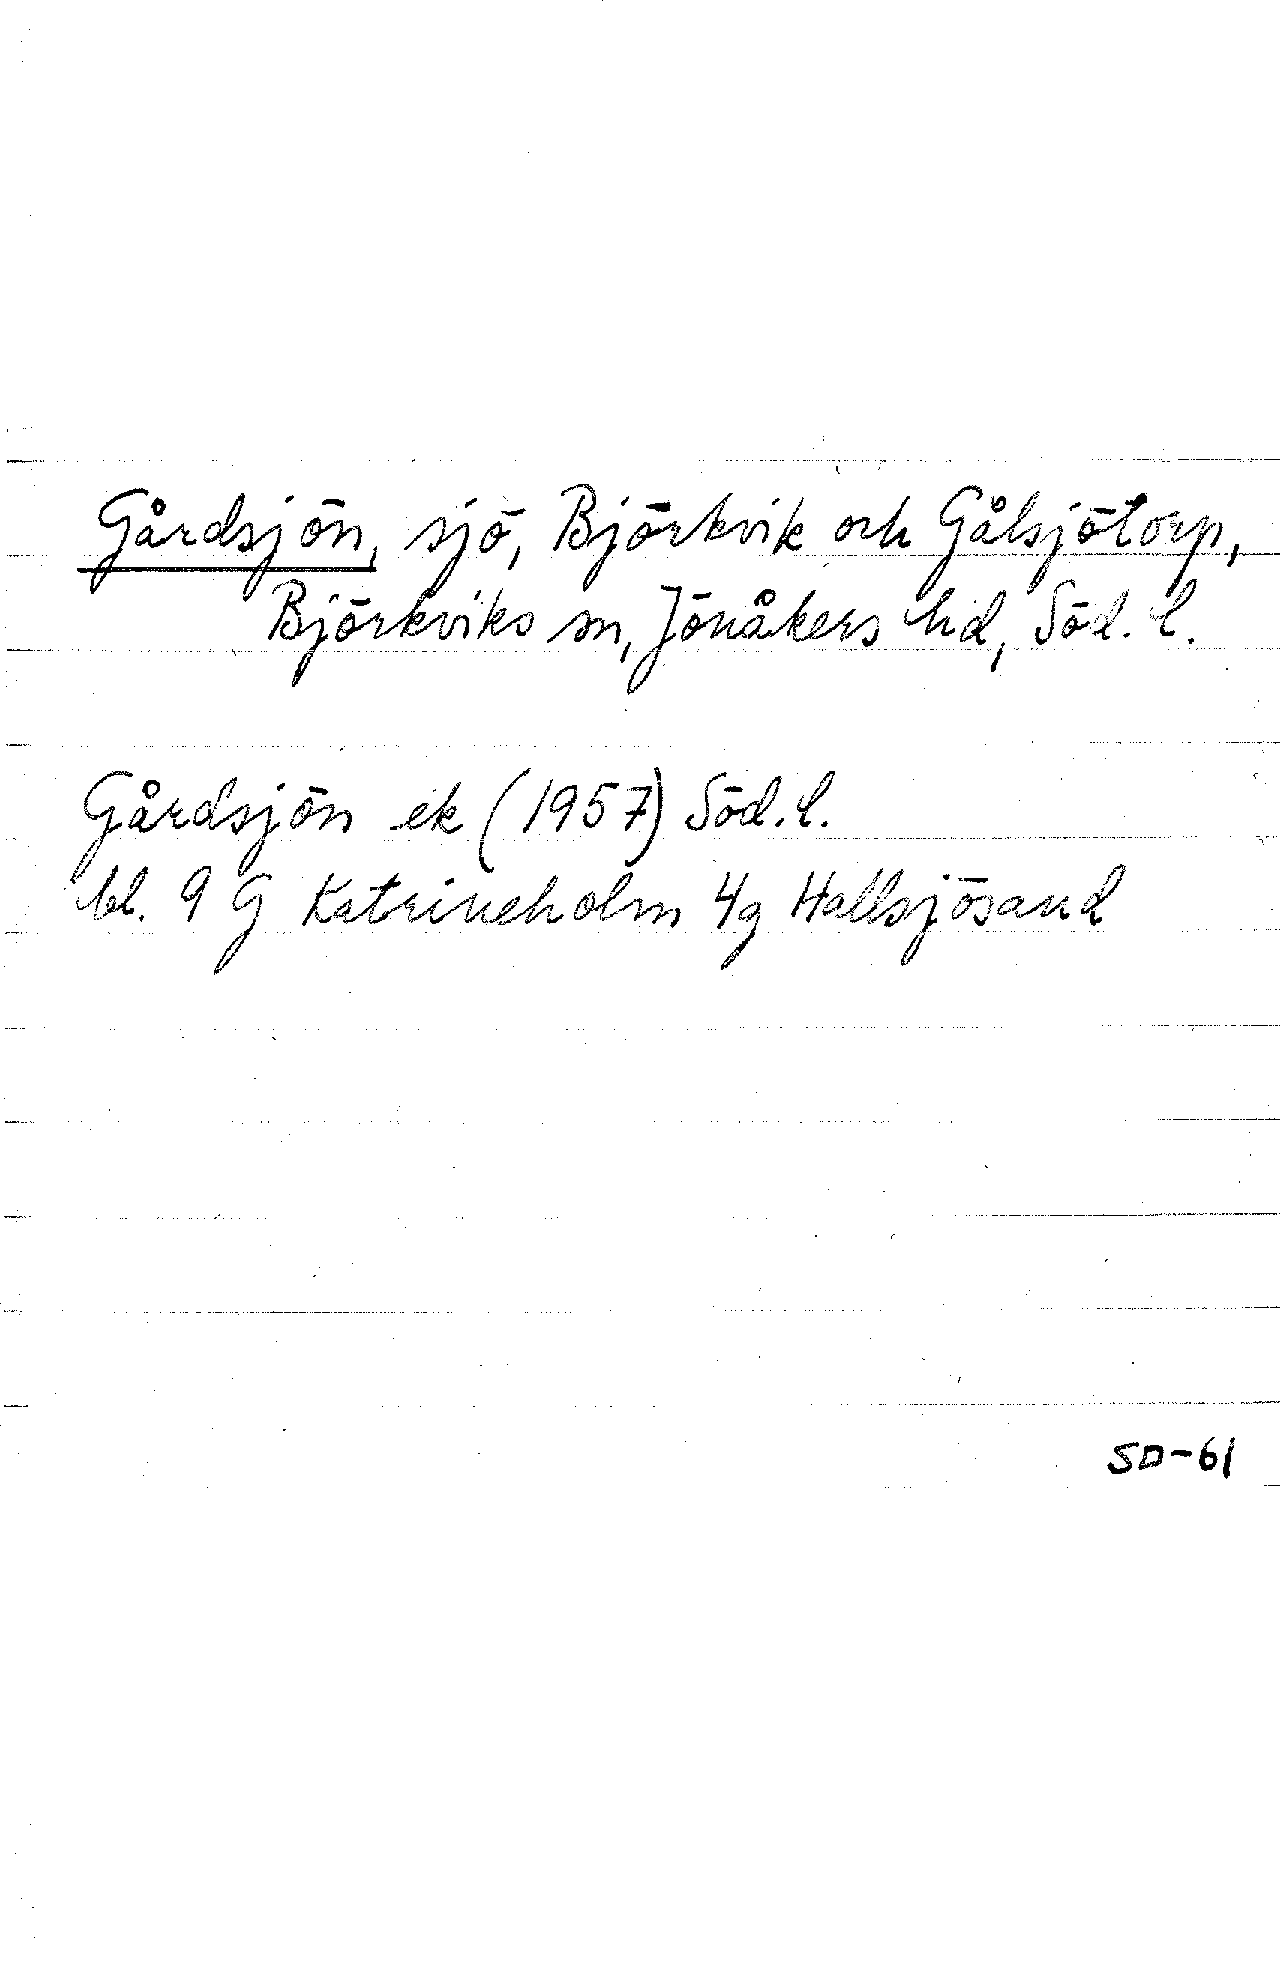 Gårdsjön, sjö, Björkvik och Gålsjötorp,
Björkviks sn, Jönåkers hd, Söd. l.
Gårdsjön ek (1957) Söd. l.
bl. 9 G Katrineholm 4g Hallsjösand
SD-61